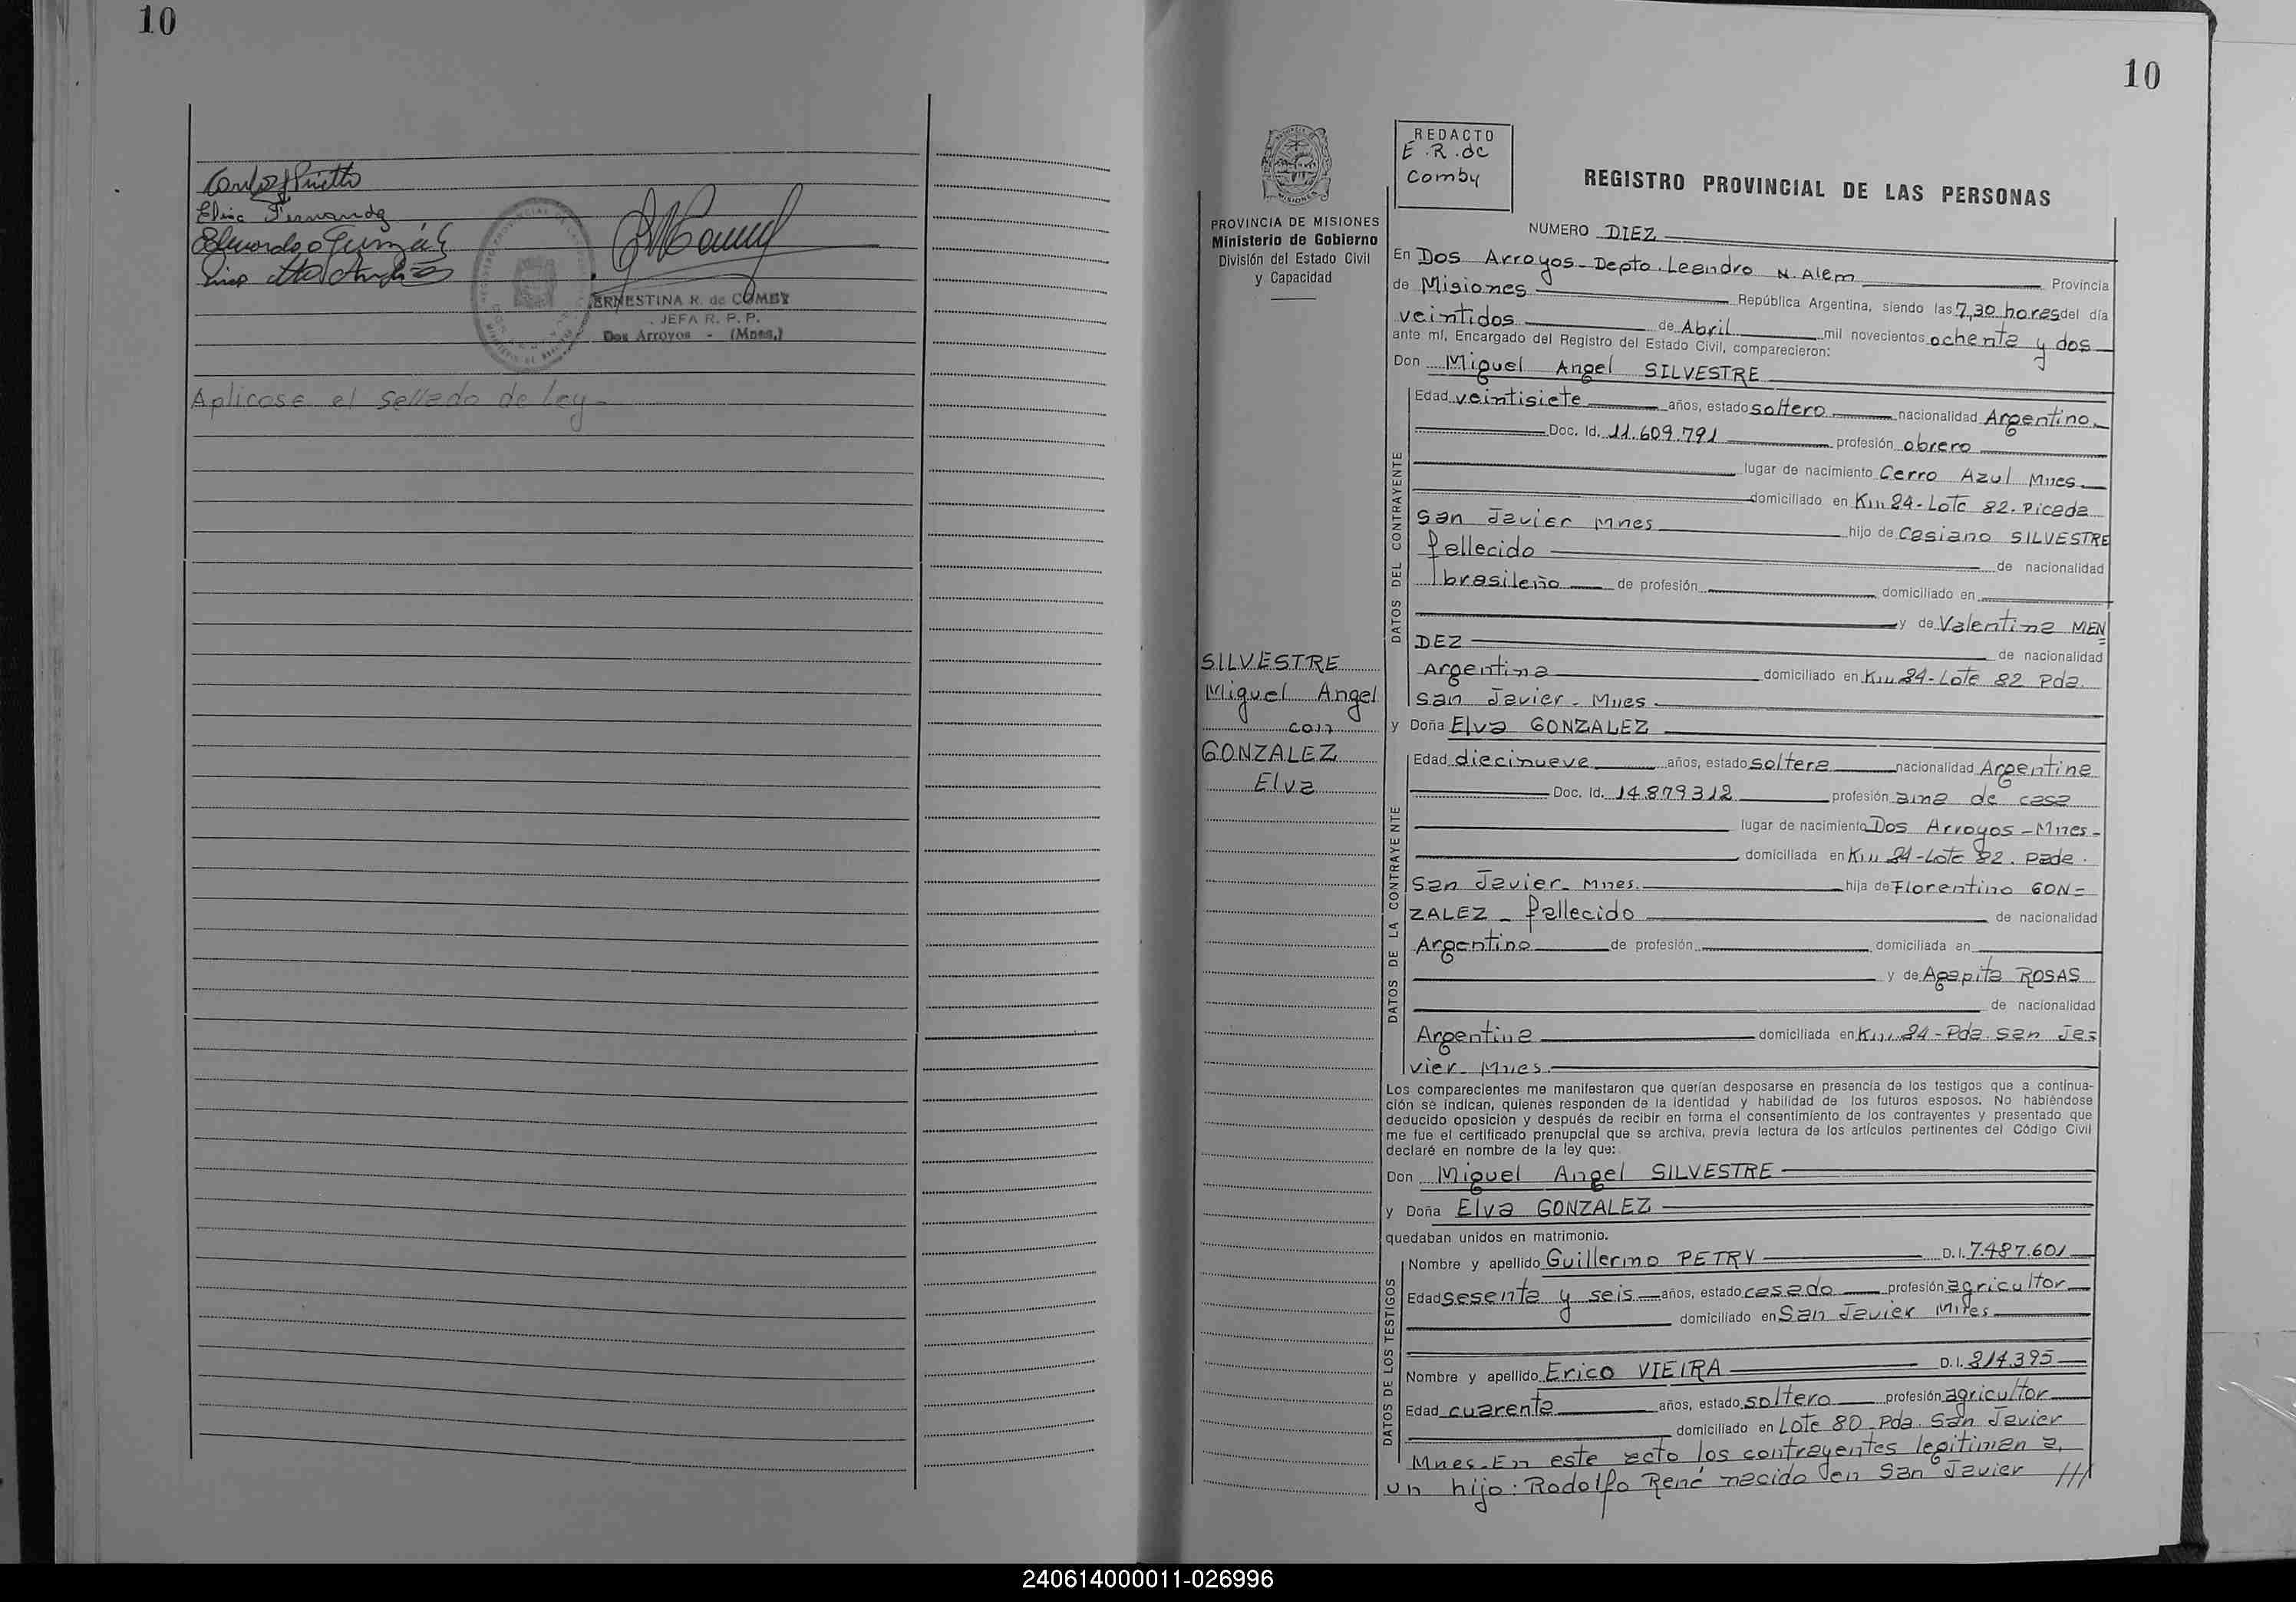 10
Elisa Fernandz
Eduardo Guzmán
ERNESTINA R. de COMBY
JEFA R. P. P.
Dos Arroyos - (Mnes.)
Aplicose el sellado de ley-
10
REDACTO
E.R. de
Comby
REGISTRO PROVINCIAL DE LAS PERSONAS
PROVINCIA DE MISIONES
Ministerio de Gobierno
División del Estado Civil
y Capacidad
SILVESTRE
Miguel Angel
con
GONZALEZ
Elva
NUMERO DIEZ
En Dos Arroyos-Depto.Leandro N.Alem Provincia
de Misiones República Argentina, siendo las 7,30 horas del día
veintidos de Abril mil novecientos ochenta y dos
ante mí, Encargado del Registro del Estado Civil, comparecieron:
Don Miguel Angel SILVESTRE
DATOS DEL CONTRAYENTE
Edad veintisiete años, estado soltero nacionalidad Argentino.
Doc. Id. 11.609.791 profesión obrero
lugar de nacimiento Cerro Azul Mnes.
domiciliado en Km 24-Lote 82. Picada
San Javier Mnes hijo de Casiano SILVESTRE
fallecido de nacionalidad
brasileño de profesión domiciliado en
y de Valentina MEN=
DEZ de nacionalidad
Argentina domiciliado en Km 24-Lote 82 Pda.
San Javier - Mnes.
y Doña Elva GONZALEZ
DATOS DE LA CONTRAYENTE
Edad diecinueve años, estado soltera nacionalidad Argentina
Doc. Id. 14.879312 profesión ama de casa
lugar de nacimiento Dos Arroyos-Mnes-
domiciliada en Km 24-Lote 82. Pada.
San Javier- Mnes. hija de Florentino GON=
ZALEZ - fallecido de nacionalidad
Argentino de profesión domiciliada en
y de Agapita ROSAS
de nacionalidad
Argentina domiciliada en Km 24-Pda. San Ja=
vier- Mnes.
Los comparecientes me manifestaron que querían desposarse en presencia de los testigos que a continua-
ción se indican, quienes responden de la identidad y habilidad de los futuros esposos. No habiéndose
deducido oposición y después de recibir en forma el consentimiento de los contrayentes y presentado que
me fue el certificado prenupcial que se archiva, previa lectura de los artículos pertinentes del Código Civil
declaré en nombre de la ley que:
Don Miguel Angel SILVESTRE
y Doña Elva GONZALEZ
quedaban unidos en matrimonio.
DATOS DE LOS TESTIGOS
Nombre y apellido Guillermo PETRY D.I. 7.487.601
Edad sesenta y seis años, estado casado profesión agricultor
domiciliado en San Javier Mnes
Nombre y apellido Erico VIEIRA D.I. 214.395
Edad cuarenta años, estado soltero profesión agricultor
domiciliado en Lote 80 Pda. San Javier
Mnes. En este acto los contrayentes legitiman a
un hijo: Rodolfo René nacido en San Javier ///
240614000011-026996